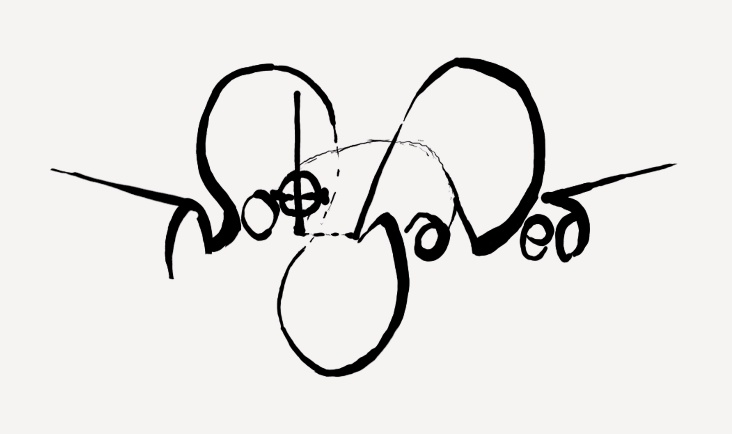 Not Saved